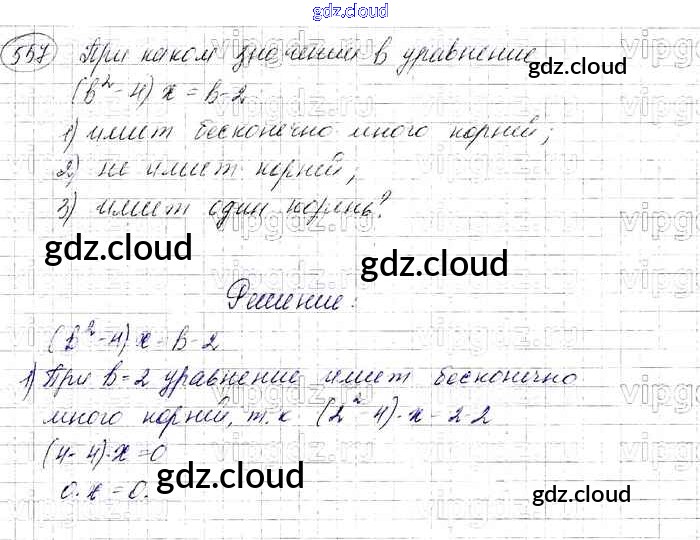 gdz.cloud
557 При каком значении в уравнение
(в² - 4) х = в-2
1) имеет бесконечно много корней;
2) не имеет корней;
3) имеет один корень?
gdz.cloud
gdz.cloud
gdz.cloud
Решение:
(в² - 4) · х = в - 2
1) При в=2 уравнение имеет бесконечно
много корней, т.к (2² - 4) · х = 2-2
(4 - 4) · х = 0
0 · х = 0.
gdz.cloud
gdz.cloud